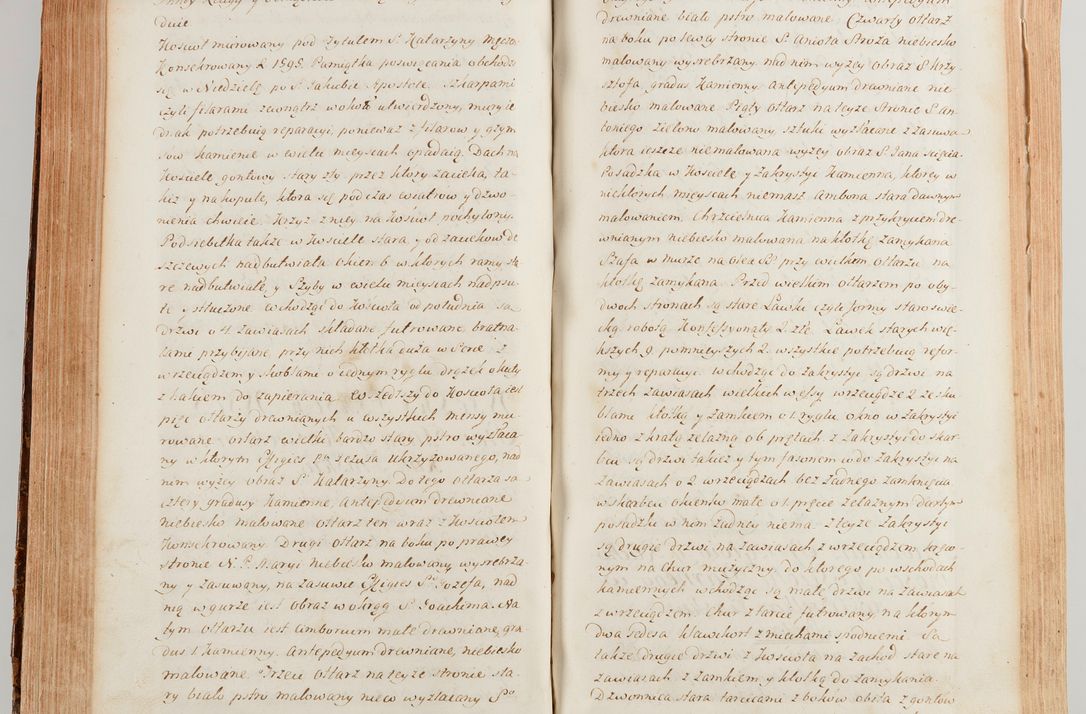 dnie
Kościoł murowany pod Tytułem S. Katarzyny Męcz:
Konsekrowany R. 1595. Pamiątka poswięcania obchodzi
się w Niedzielę po S. Jakubie Apostole. Szkarpami
czyli filarami zewnątrz wokoło utwierdzony, mury ie
dnak potrzebuią reparacyi, ponieważ z filarow y gzym
sow kamienie w wielu mieyscach opadaią. Dach na
Kościele gontowy stary zły przez ktory zacieka, ta-
kiż y na kopule, ktora się podczas wiatrow y dzwo-
nienia chwieie. Krzyż z niey na Kościoł pochylony.
Podsiebitka także w Kościele stara y od zaciekow de
szczowych nadbutwiała okien 6 w ktorych ramy sta
re nadbutwiałe, y Szyby w wielu mieyscach nadpsu-
te y stłuczone. wchodząc do Kościoła od południa są
drzwi o 4. zawiasach składane futrowane, bratna-
lami przybiiane, przy nich kłotka duża w Serce z
wrzeciądzem y skoblami o iednym ryglu drążek okuty
z hakiem do zapierania. Wszedłszy do Kościoła iest
pięć ołtarzy drewnianych u wszystkich mensy mu-
rowane. ołtarz wielki bardzo stary pstro wyzłaca
ny w ktorym Effigies P. Jezusa Ukrzyżowanego, nad
nim wyżey obraz S. Katarzyny. Do tego ołtarza są
cztery gradusy kamienne, Antepedyum drewniane
niebiesko malowane ołtarz ten wraz z Kościołem
Konsekrowany. Drugi ołtarz na boku po prawey
stronie N. P. Maryi niebiesko malowany, wysrebrza
ny y zasuwany, na zasuwie Effigies S. Jozefa, nad
nią w gurze iest obraz w okrąg S. Joachima. Na
tym ołtarzu iest cimborium małe drewniane, gra
dus 1. kamienny. Antepedyum drewniane, niebiesko
malowane. Trzeci ołtarz na teyże stronie sta-
ry biało pstro malowany nieco wyzłacany S.
drewniane biało pstro malowane. Czwarty ołtarz
na boku po lewey stronie S. Anioła Stroża niebiesko
malowany wysrebrzany nad nim wyżey obraz S. Krzy-
sztofa gradus kamienny Antepedyum drewniane nie-
biesko malowane Piąty ołtarz na teyże Stronie S. An-
toniego zielono malowany sztuki wyzłacane z zasuwą
ktora ieszcze niemalowana wyżey obraz S. Jana ścięcia.
Posadzka w Kościele y Zakrystyi kamienna, ktorey w
niektorych mieyscach niemasz. Ambona stara dawnym
malowaniem. Chrzcielnica kamienna z przykryciem dre
wnianym niebiesko malowana na kłotkę zamykana.
Szafa w murze na Olea SS przy wielkim ołtarzu na
kłotkę zamykana. Przed wielkim ołtarzem po oby-
dwoch stronach są stare Ławki czyli formy staroświe
cką robotą. Konfessyonały 2. złe. Ławek starych wię-
kszych 9. pomnieyszych 2. wszystkie potrzebuią refor-
my y reparacyi. wchodząc do Zakrystyi są drzwi na
trzech zawiasach wielkich w esy wrzeciądze 2. ze sko
blami kłotką y zamkiem o 1. ryglu okno w Zakrystyi
iedno z kratą żelazną o 6 prętach. z Zakrystyi do skar
bcu są drzwi takież y tym fasonem co do zakrystyi na
zawiasach o 2 wrzeciądzach bez żadnego zamknięcia.
w skarbcu okienko małe o 1. pręcie żelaznym
posadzki w nim żadney niema. z teyże Zakrystyi
są drugie drzwi na zawiasach z wrzeciądzem
nym na Chur muzyczny, do ktorego po wschodach
kamiennych wchodząc są małe drzwi na zawiasach
z wrzeciądzem. Chur z tarcic futrowany, na ktorym
dwa sedesa klawikort z miechami spodniemi Są
także drugie drzwi z Kościoła na zachod stare na
zawiasach z zamkiem y kłotką do zamykania.
Dzwonnica stara tarcicami z bokow obita z gontow